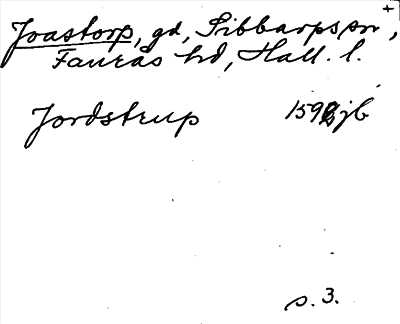 +
Joastorp, gd, Sibbarps sn,
Faurås hd, Hall. l.
Jordstrup jb
s. 3.